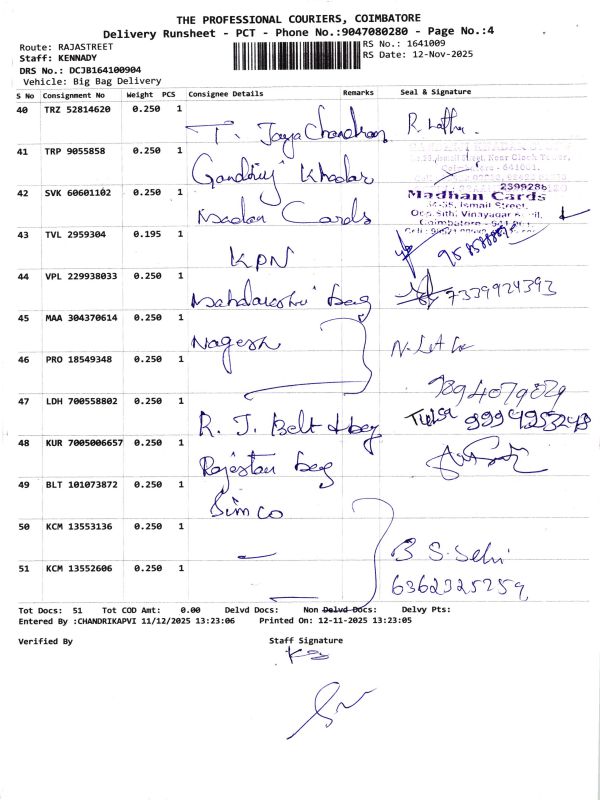 THE PROFESSIONAL COURIERS, COIMBATORE
Delivery Runsheet - PCT - Phone No.:9047080280 - Page No.:4
Route: RAJASTREET
RS No.: 1641009
Staff: KENNADY
RS Date: 12-Nov-2025
DRS No.: DCJB164100904
Vehicle: Big Bag Delivery
S No Consignment No Weight PCS Consignee Details Remarks Seal & Signature
40 TRZ 52814620 0.250 1
T. JayaChandran R. Latha.
41 TRP 9055858 0.250 1
Gandhiji Khadar
42 SVK 60601102 0.250 1
Madan Cards
239928
Madhan Cards
34-35, Ismail Street,
Opp. Sithi Vinayagar
Coimbatore
43 TVL 2959304 0.195 1
KPN
44 VPL 229938033 0.250 1
bag 7339924393
45 MAA 304370614 0.250 1
Nagesh
46 PRO 18549348 0.250 1
7894079829
47 LDH 700558802 0.250 1
R. J. Belt & bag
48 KUR 7005006657 0.250 1
Rajestan bag
49 BLT 101073872 0.250 1
Simco
50 KCM 13553136 0.250 1
B S. Selvi
51 KCM 13552606 0.250 1
6362325259
Tot Docs: 51 Tot COD Amt: 0.00 Delvd Docs: Non Delvd Docs: Delvy Pts:
Entered By :CHANDRIKAPVI 11/12/2025 13:23:06 Printed On: 12-11-2025 13:23:05
Verified By Staff Signature